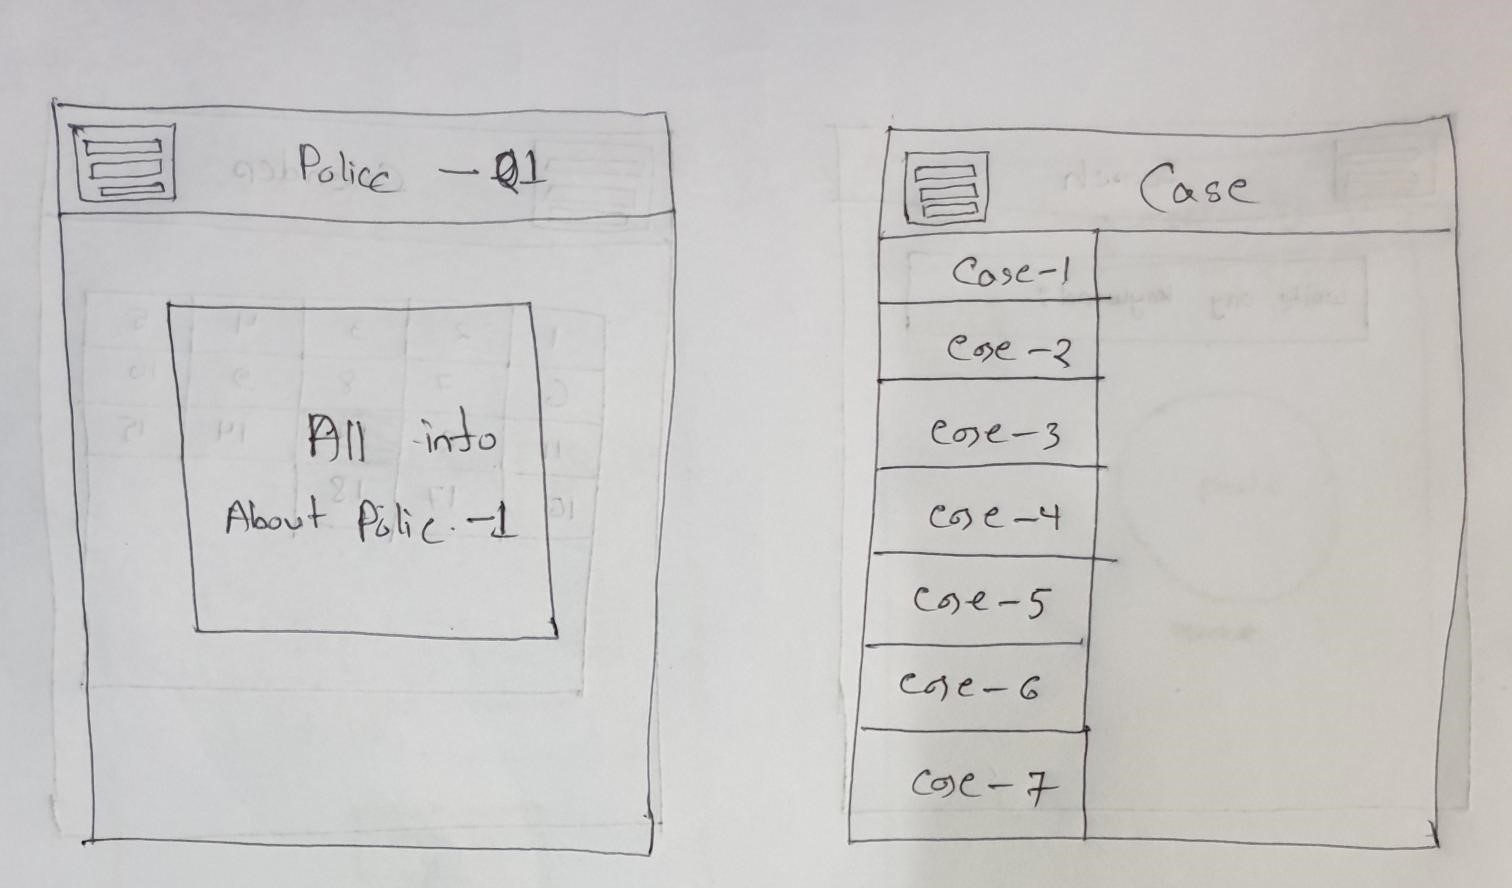 Police - 1
All info
About Polic. -1
Case
Case-1
Case-2
Case-3
Case-4
Case-5
Case-6
Case-7